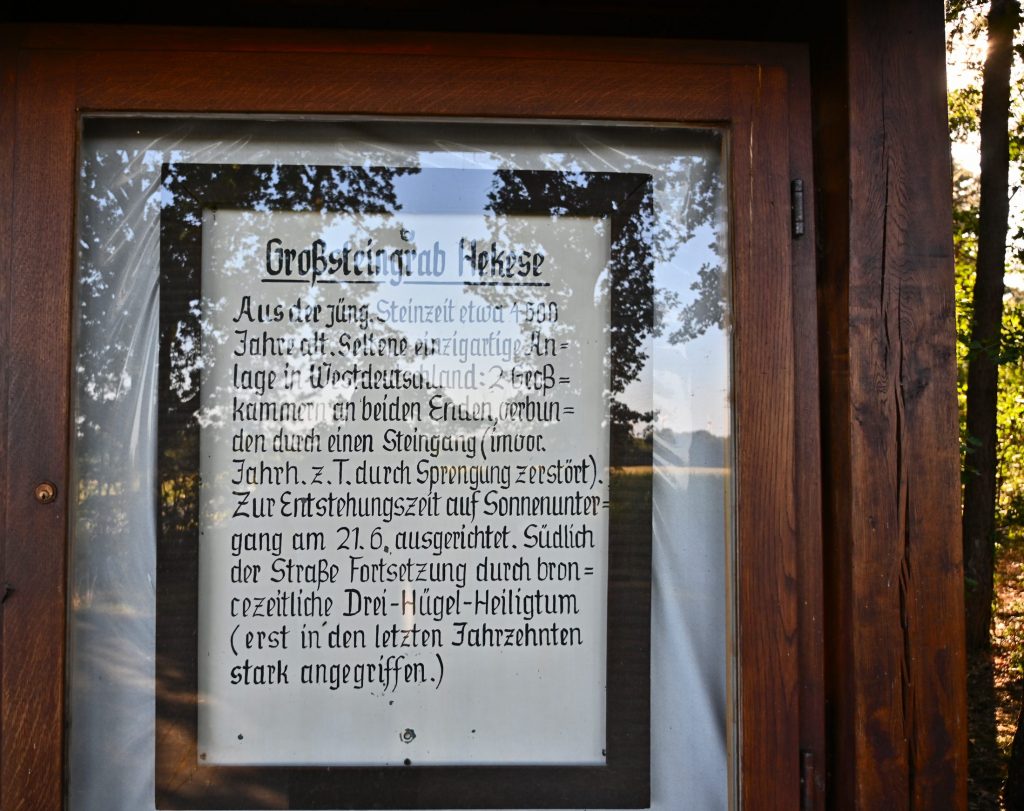 Großsteingrab Hekese
Aus der jüng. Steinzeit etwa 4500
Jahre alt. Seltene einzigartige An=
lage in Westdeutschland: 2 Groß=
kammern an beiden Enden, verbun=
den durch einen Steingang (im vor.
Jahrh. z. T. durch Sprengung zerstört).
Zur Entstehungszeit auf Sonnenunter=
gang am 21. 6. ausgerichtet. Südlich
der Straße Fortsetzung durch bron=
cezeitliche Drei-Hügel-Heiligtum
(erst in den letzten Jahrzehnten
stark angegriffen.)